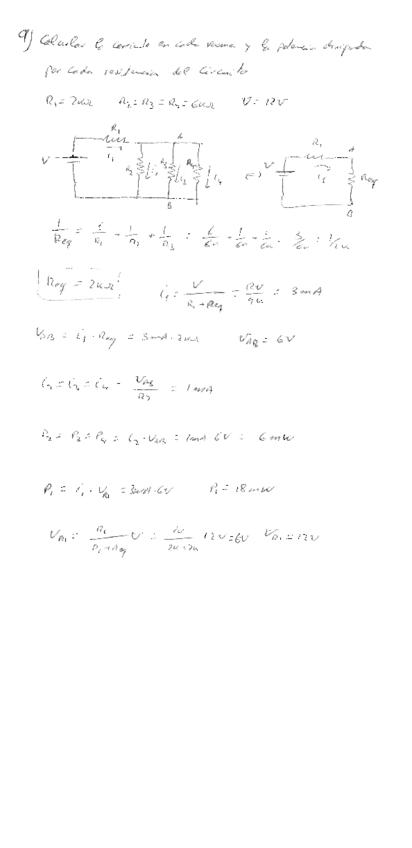 9) Calcular la corriente en cada rama y la potencia disipada
por cada resistencia del circuito
R₁ = 2kΩ R₂ = R₃ = R₄ = 6kΩ V = 12V
R₁ A R₁ A
V i₁ R₂ R₃ i₃ R₄ i₄ <=> V i₁ Req
B B
1/Req = 1/R₁ + 1/R₂ + 1/R₃ = 1/6k + 1/6k + 1/6k = 3/6k = 1/2k
Req = 2kΩ i₁ = V/(R₁ + Req) = 12V/4k = 3mA
VAB = i₁ · Req = 3mA · 2kΩ VAB = 6V
i₂ = i₃ = i₄ = VAB/R₂ = 1mA
P₂ = P₃ = P₄ = i₂ · VAB = 1mA · 6V = 6mW
P₁ = i₁ · VR₁ = 3mA · 6V P₁ = 18mW
VR₁ = R₁/(R₁ + Req) V = 2k/(2k + 2k) 12V = 6V VR₁ = 12V